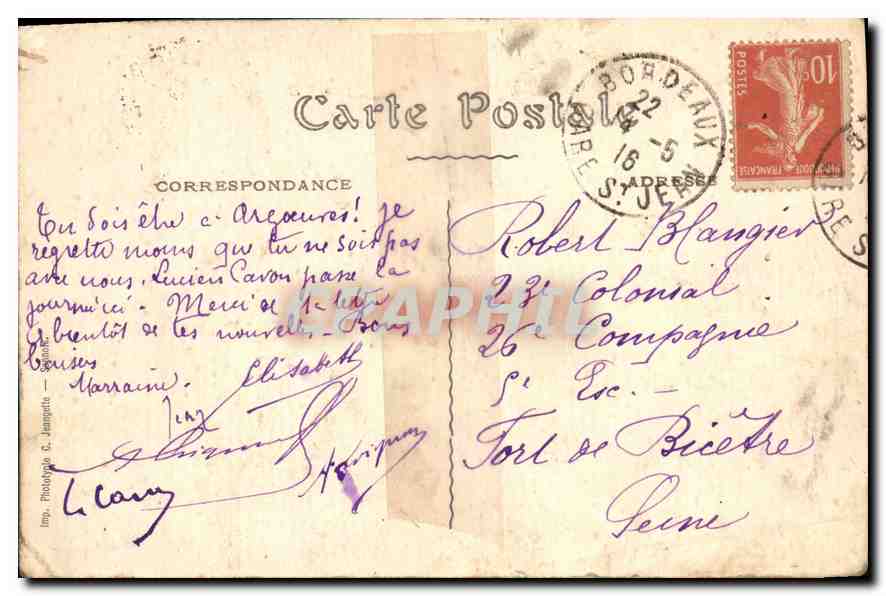 Carte Postale
CORRESPONDANCE
ADRESSE
Tu dois être à Argoeuves! je
regrette moins que tu ne sois pas
avec nous. Lucien Cavon passe la
journée ici. Merci de ta
A bientôt de tes nouvelles. Bons
baisers
Marraine.
Elisabeth
Robert Blangier
23e Colonial
26e Compagnie
5e Esc.
Fort de Bicêtre
Seine
BORDEAUX
22
16 -5
GARE ST JEAN
10c
POSTES
REPUBLIQUE FRANÇAISE
CPAPHIL
Imp. Phototypie C. Jeangette